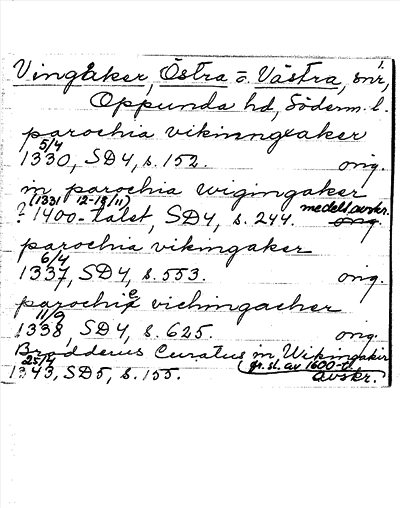 1.
Vingåker, Östra o. Västra, snr,
Oppunda hd, Söderm. l.
parochia vikinngxaker
5/4
1330, SD4, s. 152. orig.
in parochia wigingaker
(1331 12-18/11) medelt. avskr.
? 1400-talet, SD4, s. 244. orig.
parochia vikingaker
6/4
1337, SD4, s. 553. orig.
parochie vichingacher
11/9
1338, SD4, s. 625. orig.
Brodderus Curatus in Wikingakir
25/4 (gr. sl. av 1600-t.)
1343, SD5, s. 155. avskr.